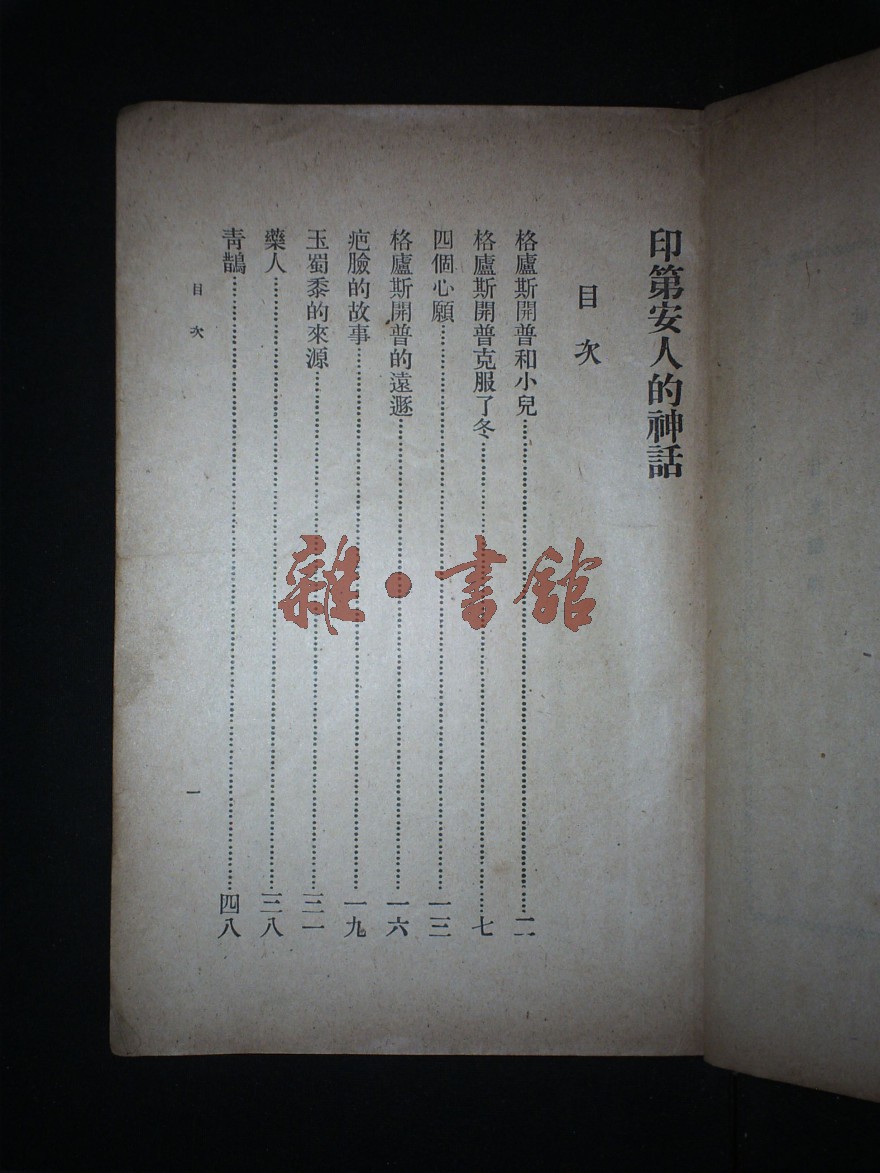 印第安人的神話
目次
格廬斯開普和小兒……二
格廬斯開普克服了冬……七
四個心願……一三
格廬斯開普的遠遯……一六
疤臉的故事……一九
玉蜀黍的來源……三一
藥人……三八
青鵲……四八
目次
一
雜·書館